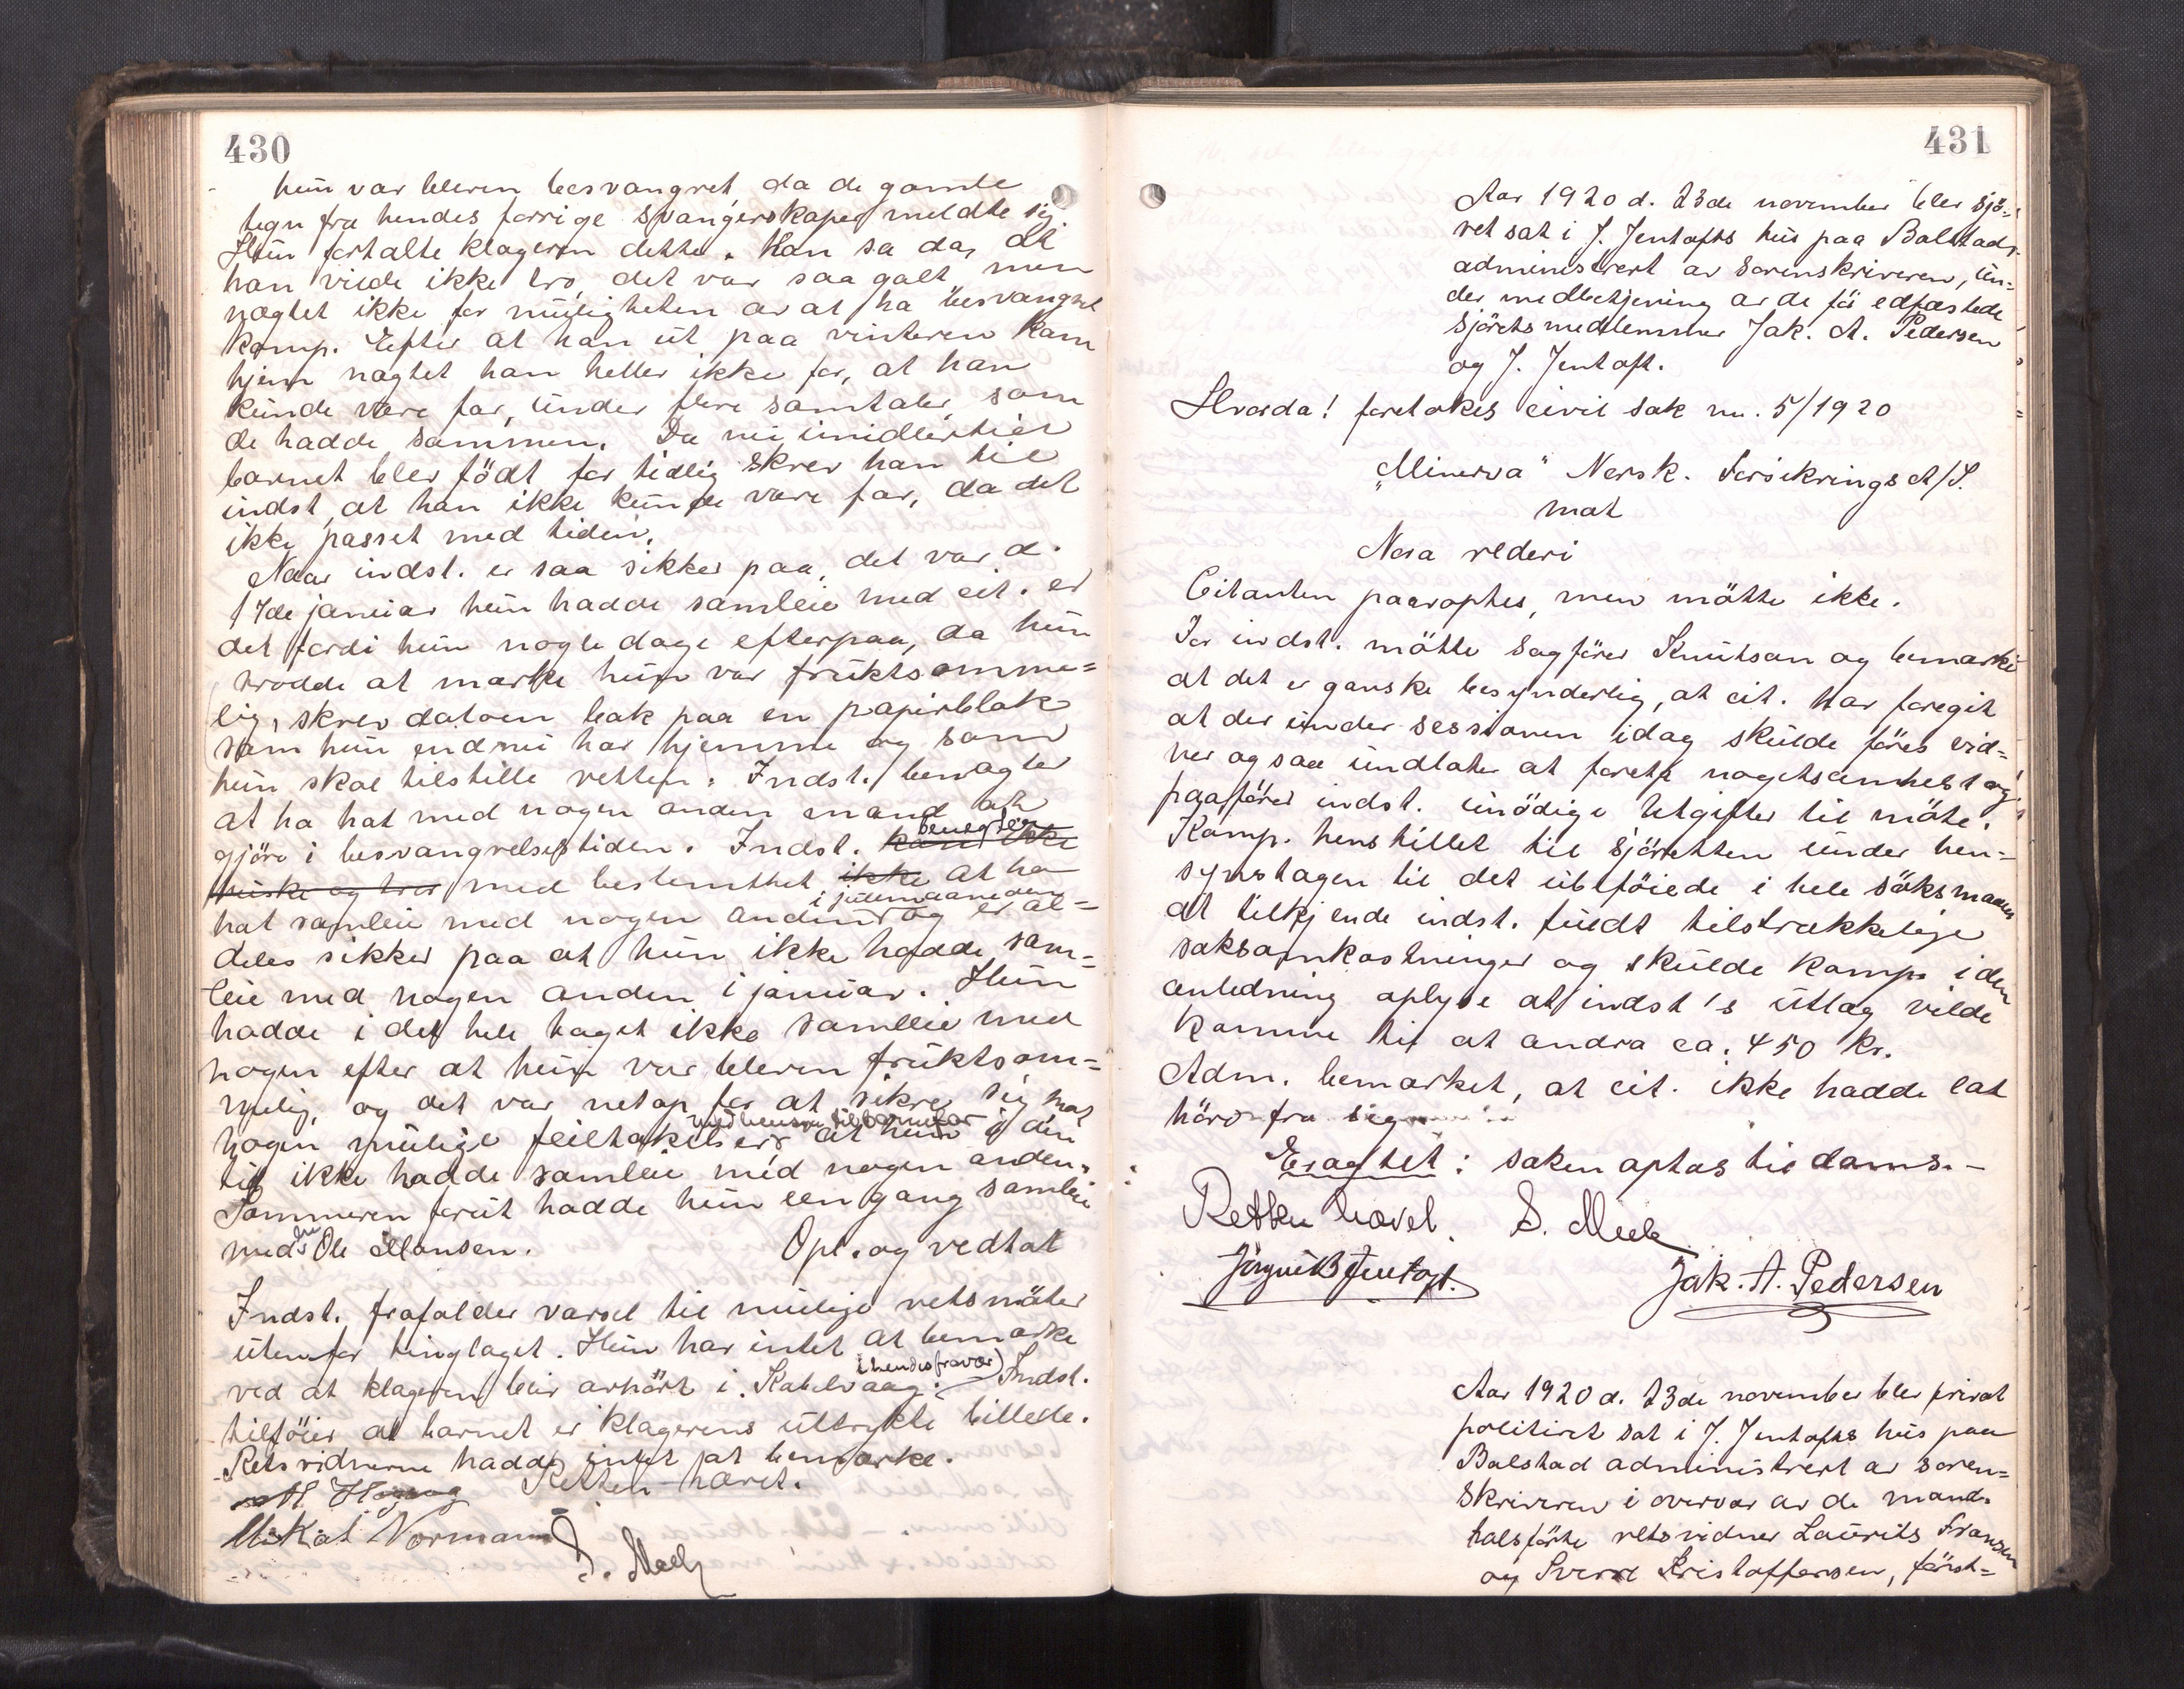 430
hun var bleven besvangret da de gamle
tegn fra hendes forrige svangerskaper meldte sig.
Hun fortalte klageren dette. Han sa da, at
han vilde ikke tro, det var saa galt men
nægtet ikke for muligheten av at ha besvangret
komp. Efter at han ut paa vinteren kom
hjem nægtet han heller ikke for, at han
kunde være far, under flere samtaler som
de hadde sammen. Da nu imidlertid
barnet blev födt for tidlig skrev han til
indst, at han ikke kunde være far, da det
ikke passet med tiden.
Naar indst. er saa sikker paa, det var d.
17de januar hun hadde samleie med cit. er
det fordi hun nogle dage efterpaa, da hun
trodde at mærke hun var fruktsomme=
lig, skrev datoen bak paa en papirblok
som hun endnu har hjemme og som
hun skal tilstille retten. Indst. benægter
at ha hat med nogen anden mand at
gjöre i besvangrelsestiden. Indst. kan ikke benegter
huske og tror med bestemthet ikke at ha
hat samleie med nogen anden i julemaaneden og er al=
deles sikker paa at hun ikke hadde sam=
leie med nogen anden i januar. Hun
hadde i det hele taget ikke samleie med
nogen efter at hun var bleven fruktsom=
melig, og det var netop for at sikre sig mot
nogen mulige feiltakelser med hensyn til barnefar at hun i den
tid ikke hadde samleie med nogen anden.
Sommeren forut hadde hun een gang samleie
med en Ole Monsen. Opl. og vedtat
Indst. frafalder varsel til mulige retsmöter
utenfor tinglaget. Hun har intet at bemærke
ved at klageren blir avhört i Kabelvaag. (i hendes fravær) Indst.
tilföier at barnet er klagerens uttrykte billede.
Retsvidnerne hadde intet at bemærke.
Retten hævet.
Mikal Normann
S. Mech
431
Aar 1920 d. 23de november blev sjö=
ret sat i J. Jentofts hus paa Balstad,
administrert av sorenskriveren, un=
der medbetjening av de för edfæstede
sjöretsmedlemmer Jak. A. Pedersen
og J. Jentoft.
Hvorda! foretokes civil sak nr. 5/1920
"Minerva" Norsk. Forsikrings A/S.
mot
Nora rederi
Citanten paaroptes, men mötte ikke.
For indst. mötte sagförer Knutson og bemærket
at det er ganske besynderlig, at cit. har foregit
at der under sessionen idag skulde föres vid=
ner og saa undlater at foreta nogetsomhelst og
paaförer indst. unödige utgifter til möte.
Komp. henstillet til sjöretten under hen=
syntagen til det ubeföiede i hele söksmaalet
at tilkjende indst. fuldt tilstrækkelige
saksomkostninger og skulde komp. i den
anledning oplyse at indst's utlæg vilde
komme til at andra ca. 450 kr.
Adm. bemærket, at cit. ikke hadde lat
höre fra sig
Eragtet: saken optas til doms.-
Retten hævet. S. Mech
Jörgen B Jentoft. Jak. A. Pedersen
Aar 1920 d. 23de november blev privat
politiret sat i J. Jentofts hus paa
Balstad administrert av soren=
skriveren i overvær av de mand=
talsförte retsvidner Laurits Fransen
og Sverre Kristoffersen, först=